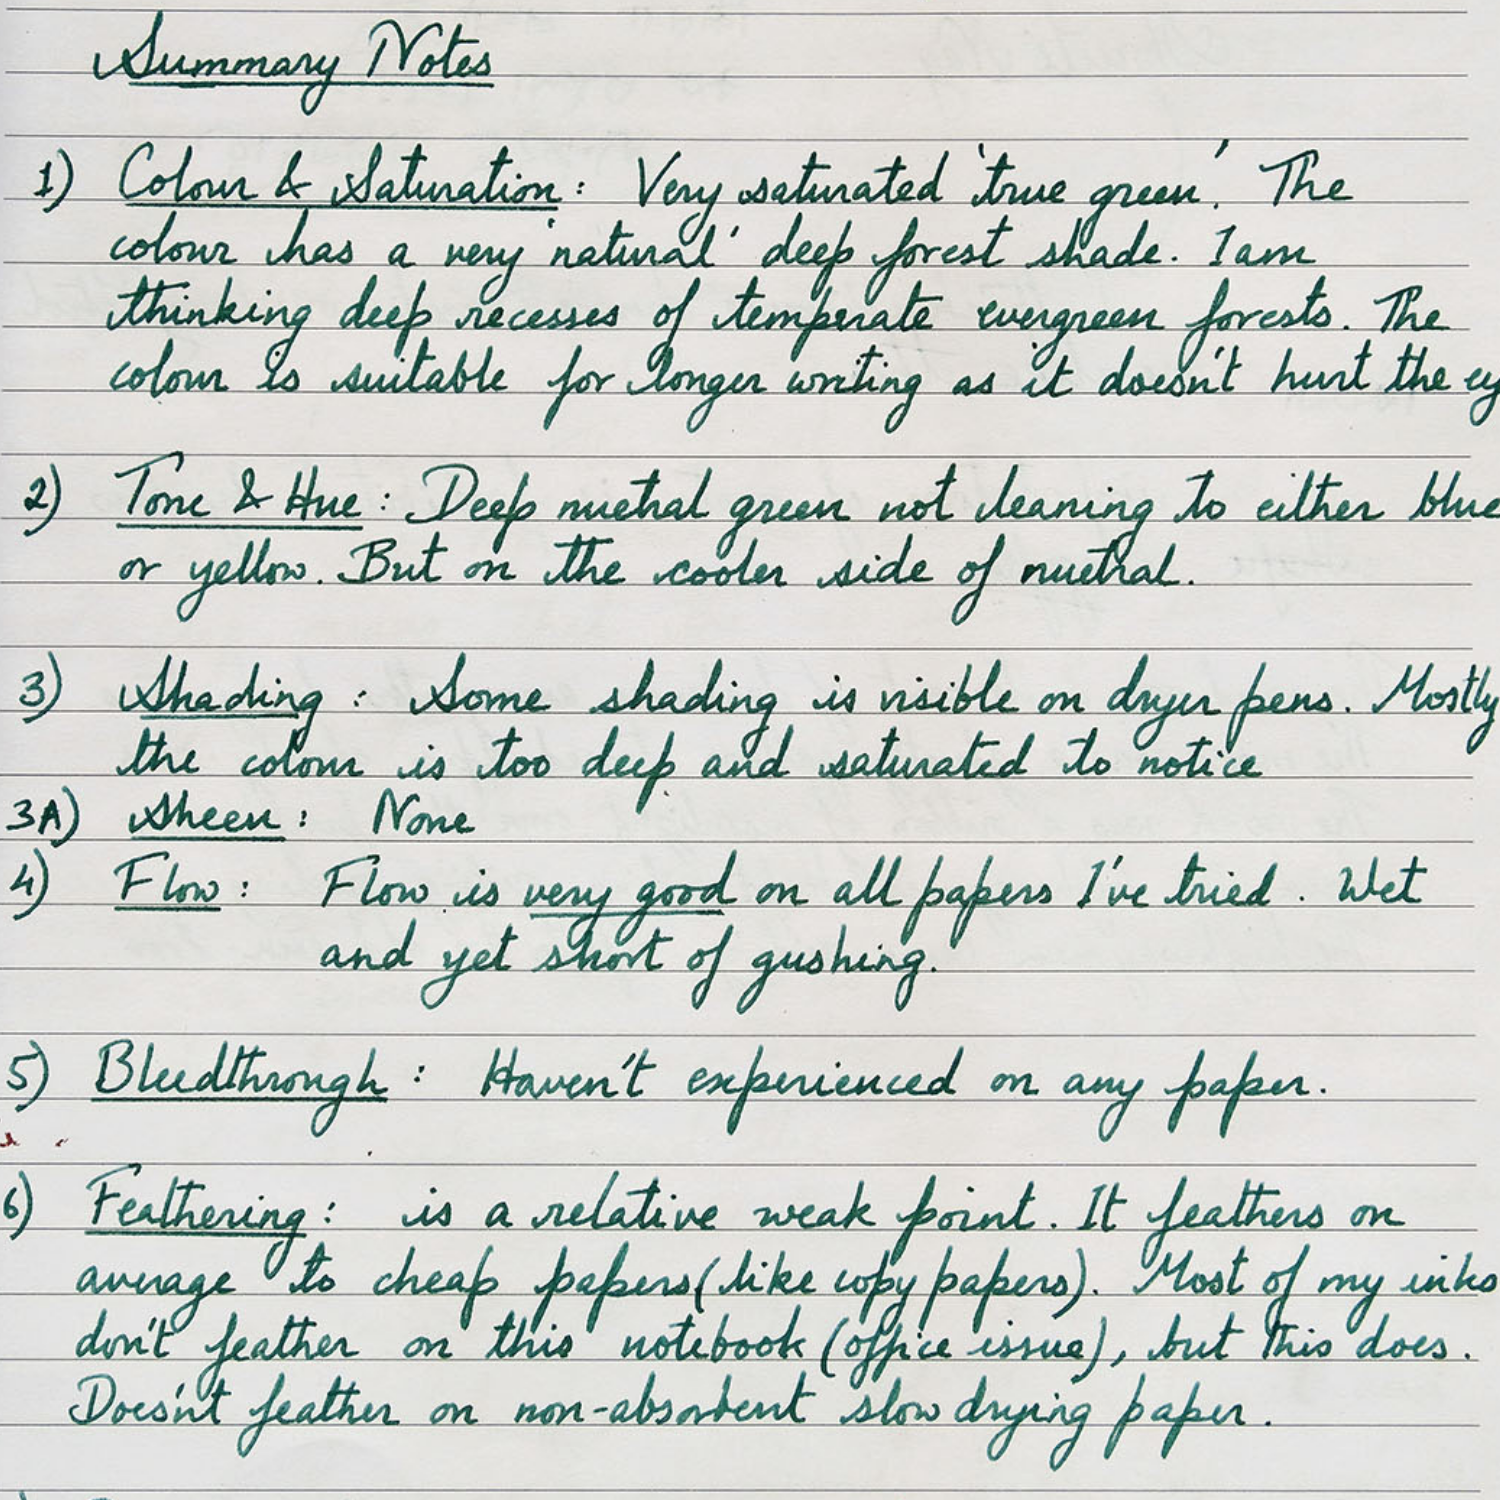 Summary Notes
1) Colour & Saturation: Very saturated 'true green'. The
colour has a very 'natural' deep forest shade. I am
thinking deep recesses of temperate evergreen forests. The
colour is suitable for longer writing as it doesn't hurt the ey
2) Tone & Hue: Deep nuetral green not leaning to either blue
or yellow. But on the cooler side of nuetral.
3) Shading: Some shading is visible on dryer pens. Mostly
the colour is too deep and saturated to notice
3A) Sheen: None
4) Flow: Flow is very good on all papers I've tried. Wet
and yet short of gushing.
5) Bleedthrough: Haven't experienced on any paper.
6) Feathering: is a relative weak point. It feathers on
average to cheap papers (like copy papers). Most of my inks
don't feather on this notebook (office issue), but this does.
Doesn't feather on non-absorbent slow drying paper.